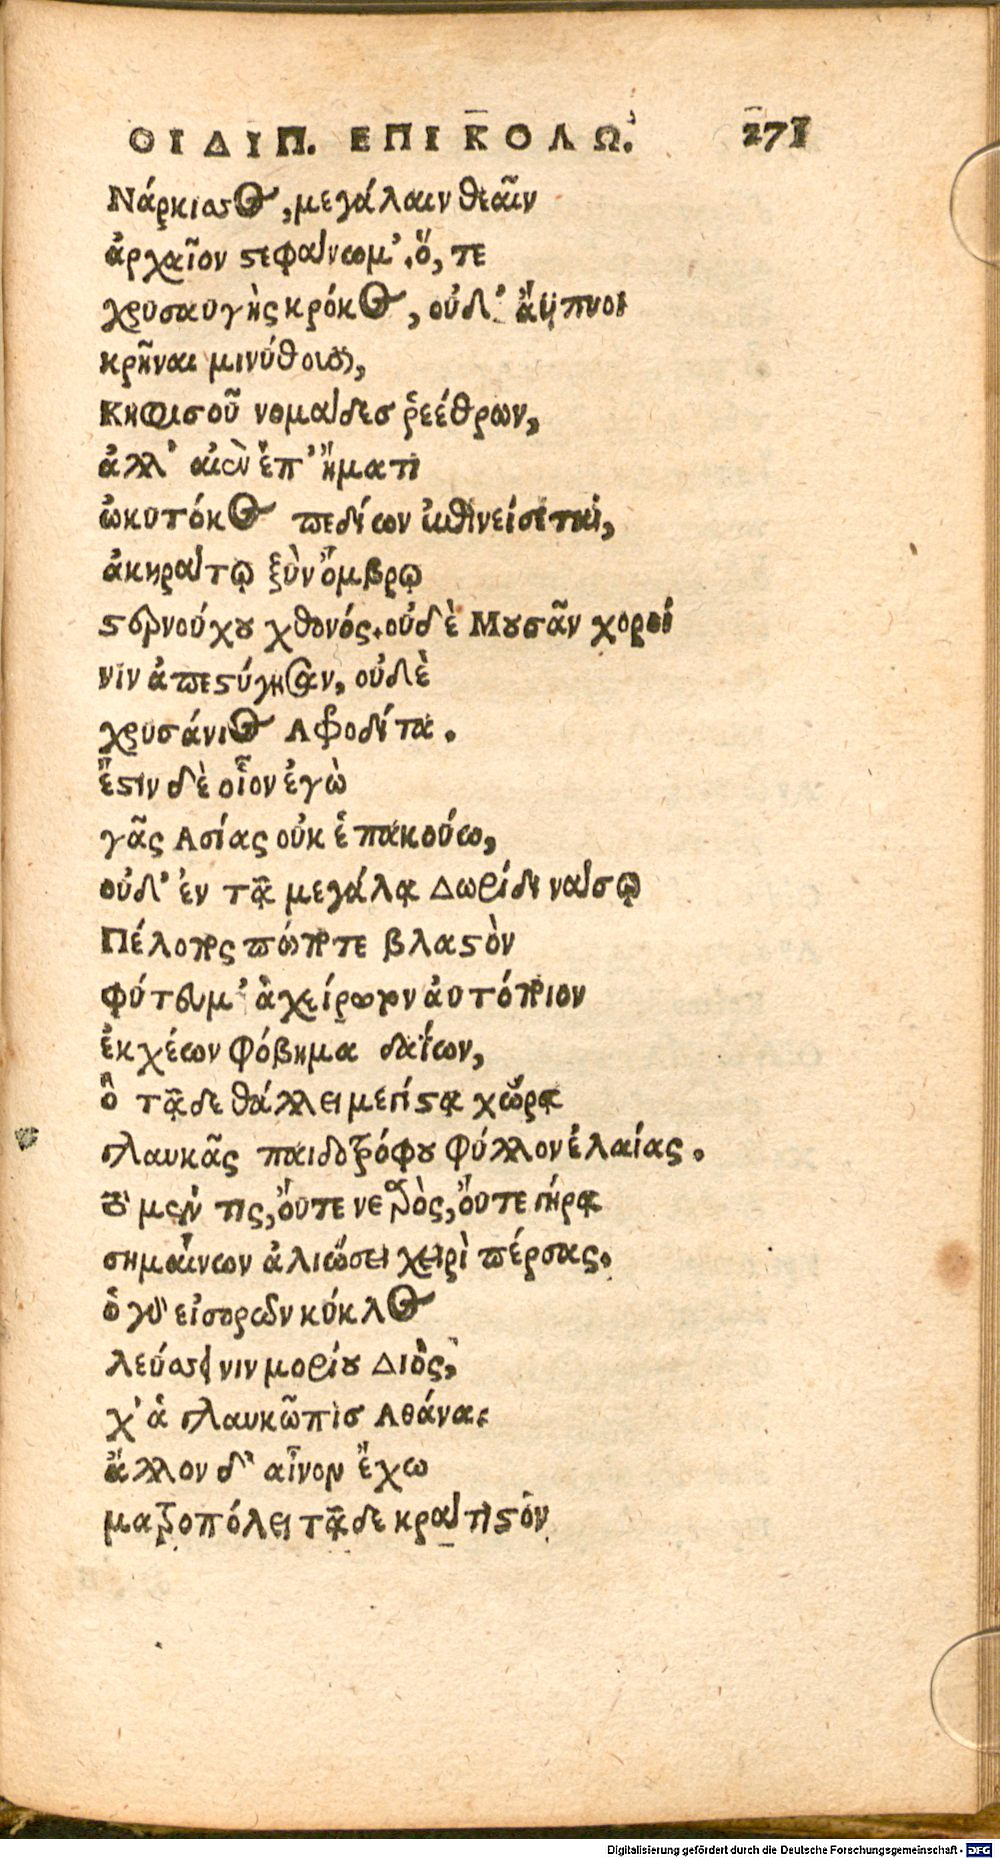 ΟΙΔΙΠ. ΕΠΙ ΚΟΛΩ. 271
Νάρκισσος, μεγάλαιν θεαῖν
ἀρχαῖον στεφάνωμ', ὅ, τε
χρυσαυγὴς κρόκος, οὐδ' ἄϋπνοι
κρῆναι μινύθουσι,
Κηφισοῦ νομάδες ῥεέθρων,
ἀλλ' αἰὲν ἐπ' ἤματι
ὠκυτόκος πεδίων ἐπινείσεται,
ἀκηράτῳ ξὺν ὄμβρῳ
στερνούχου χθονός. οὐδὲ Μουσᾶν χοροί
νιν ἀπεστύγησαν, οὐδὲ
χρυσάνιος Αφροδίτα.
ἔστιν δὲ οἷον ἐγὼ
γᾶς Ασίας οὐκ ἐπακούω,
οὐδ' ἐν τᾷ μεγάλᾳ Δωρίδι νάσῳ
Πέλοπος πώποτε βλαστὸν
φύτευμ' ἀχείρωτον αὐτόποιον
ἐκχέων φόβημα δαΐων,
ὃ τᾷδε θάλλει μεγίστᾳ χώρᾳ
γλαυκᾶς παιδοτρόφου φύλλον ἐλαίας.
τὸ μέν τις, οὔτε νεαρὸς, οὔτε γήρᾳ
σημαίνων ἁλιώσει χειρὶ πέρσας.
ὁ γὰρ εἰσορῶν κύκλος
λεύσσει νιν μορίου Διὸς,
χ' ἁ γλαυκῶπις Αθάνα.
ἄλλον δ' αἶνον ἔχω
ματροπόλει τᾷδε κράτιστον
Digitalisierung gefördert durch die Deutsche Forschungsgemeinschaft - DFG